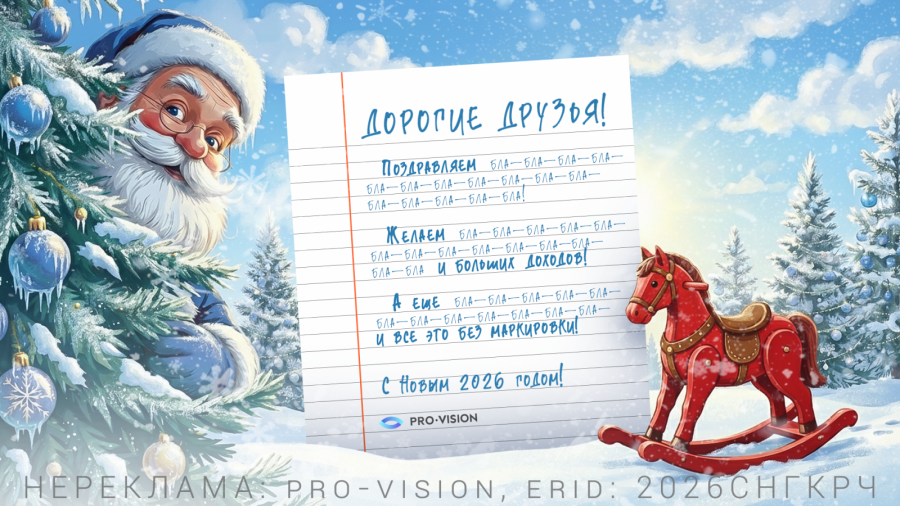 ДОРОГИЕ ДРУЗЬЯ!
Поздравляем бла—бла—бла—бла—
бла—бла—бла—бла—бла—бла—бла—
бла—бла—бла—бла—бла!
Желаем бла—бла—бла—бла—бла—
бла—бла—бла—бла—бла—бла—бла—
бла—бла и больших доходов!
А еще бла—бла—бла—бла—бла—
бла—бла—бла—бла—бла—бла—бла—
и все это без маркировки!
С Новым 2026 годом!
PRO·VISION
НЕРЕКЛАМА: PRO-VISION, ERID: 2026СНГКРЧ